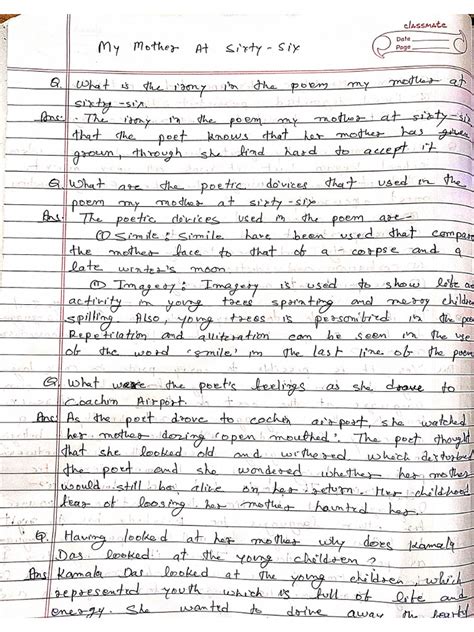 classmate
Date
Page
My Mother At Sixty-Six
Q. What is the irony in the poem my mother at
sixty-six.
Ans:- The irony in the poem my mother at sixty-six
that the poet knows that her mother has
grown, through she find hard to accept it
Q. What are the poetic divices that used in the
poem my mother at sixty-six
Ans. The poetic divices used in the poem are-
(I) Simile: Simile have been used that compare
the mother face to that of a corpse and a
late winter's moon.
(II) Imagery: Imagery is used to show life and
activity in young trees sprinting and merry children
spilling. Also, young trees is personified in the poem
Repetilation and alliteration can be seen in the use
of the word 'smile' in the last line of the poem
Q. What were the poet's feelings as she drove to
Coachin Airport.
Ans. As the poet drove to cochin airport, she watched
her mother dozing 'open mouthed'. The poet thought
that she looked old and withered, which disturbed
the poet and she wondered whether her mother
would still be alive on her return. Her childhood
fear of loosing her mother haunted her.
Q. Having looked at her mother why does Kamala
Das looked at the young children?
Ans Kamala Das looked at the young children, which
represented youth which is full of life and
energy. She wanted to drive away the